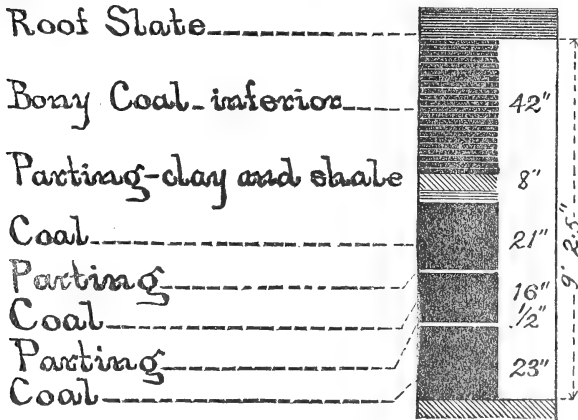 Roof Slate
Bony Coal-inferior 42"
Parting-clay and shale 8"
Coal 21"
Parting
Coal 16"
½"
Parting
Coal 23"
9' 2.5"